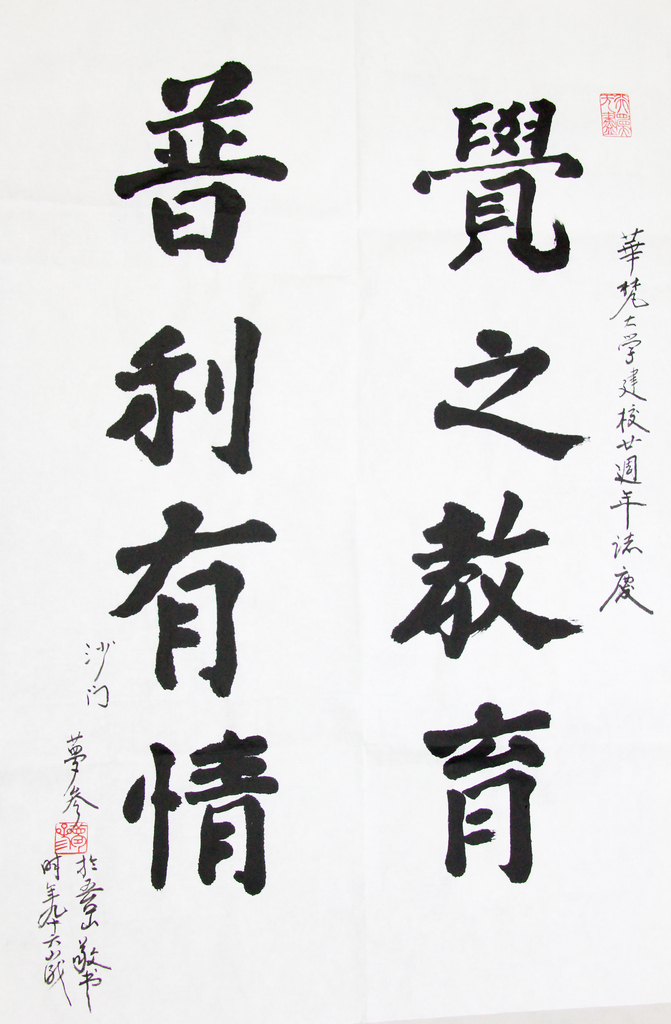 華梵大学建校廿週年誌慶
覺之教育
普利有情
沙门
夢參
於五台山敬书
时年九十六岁